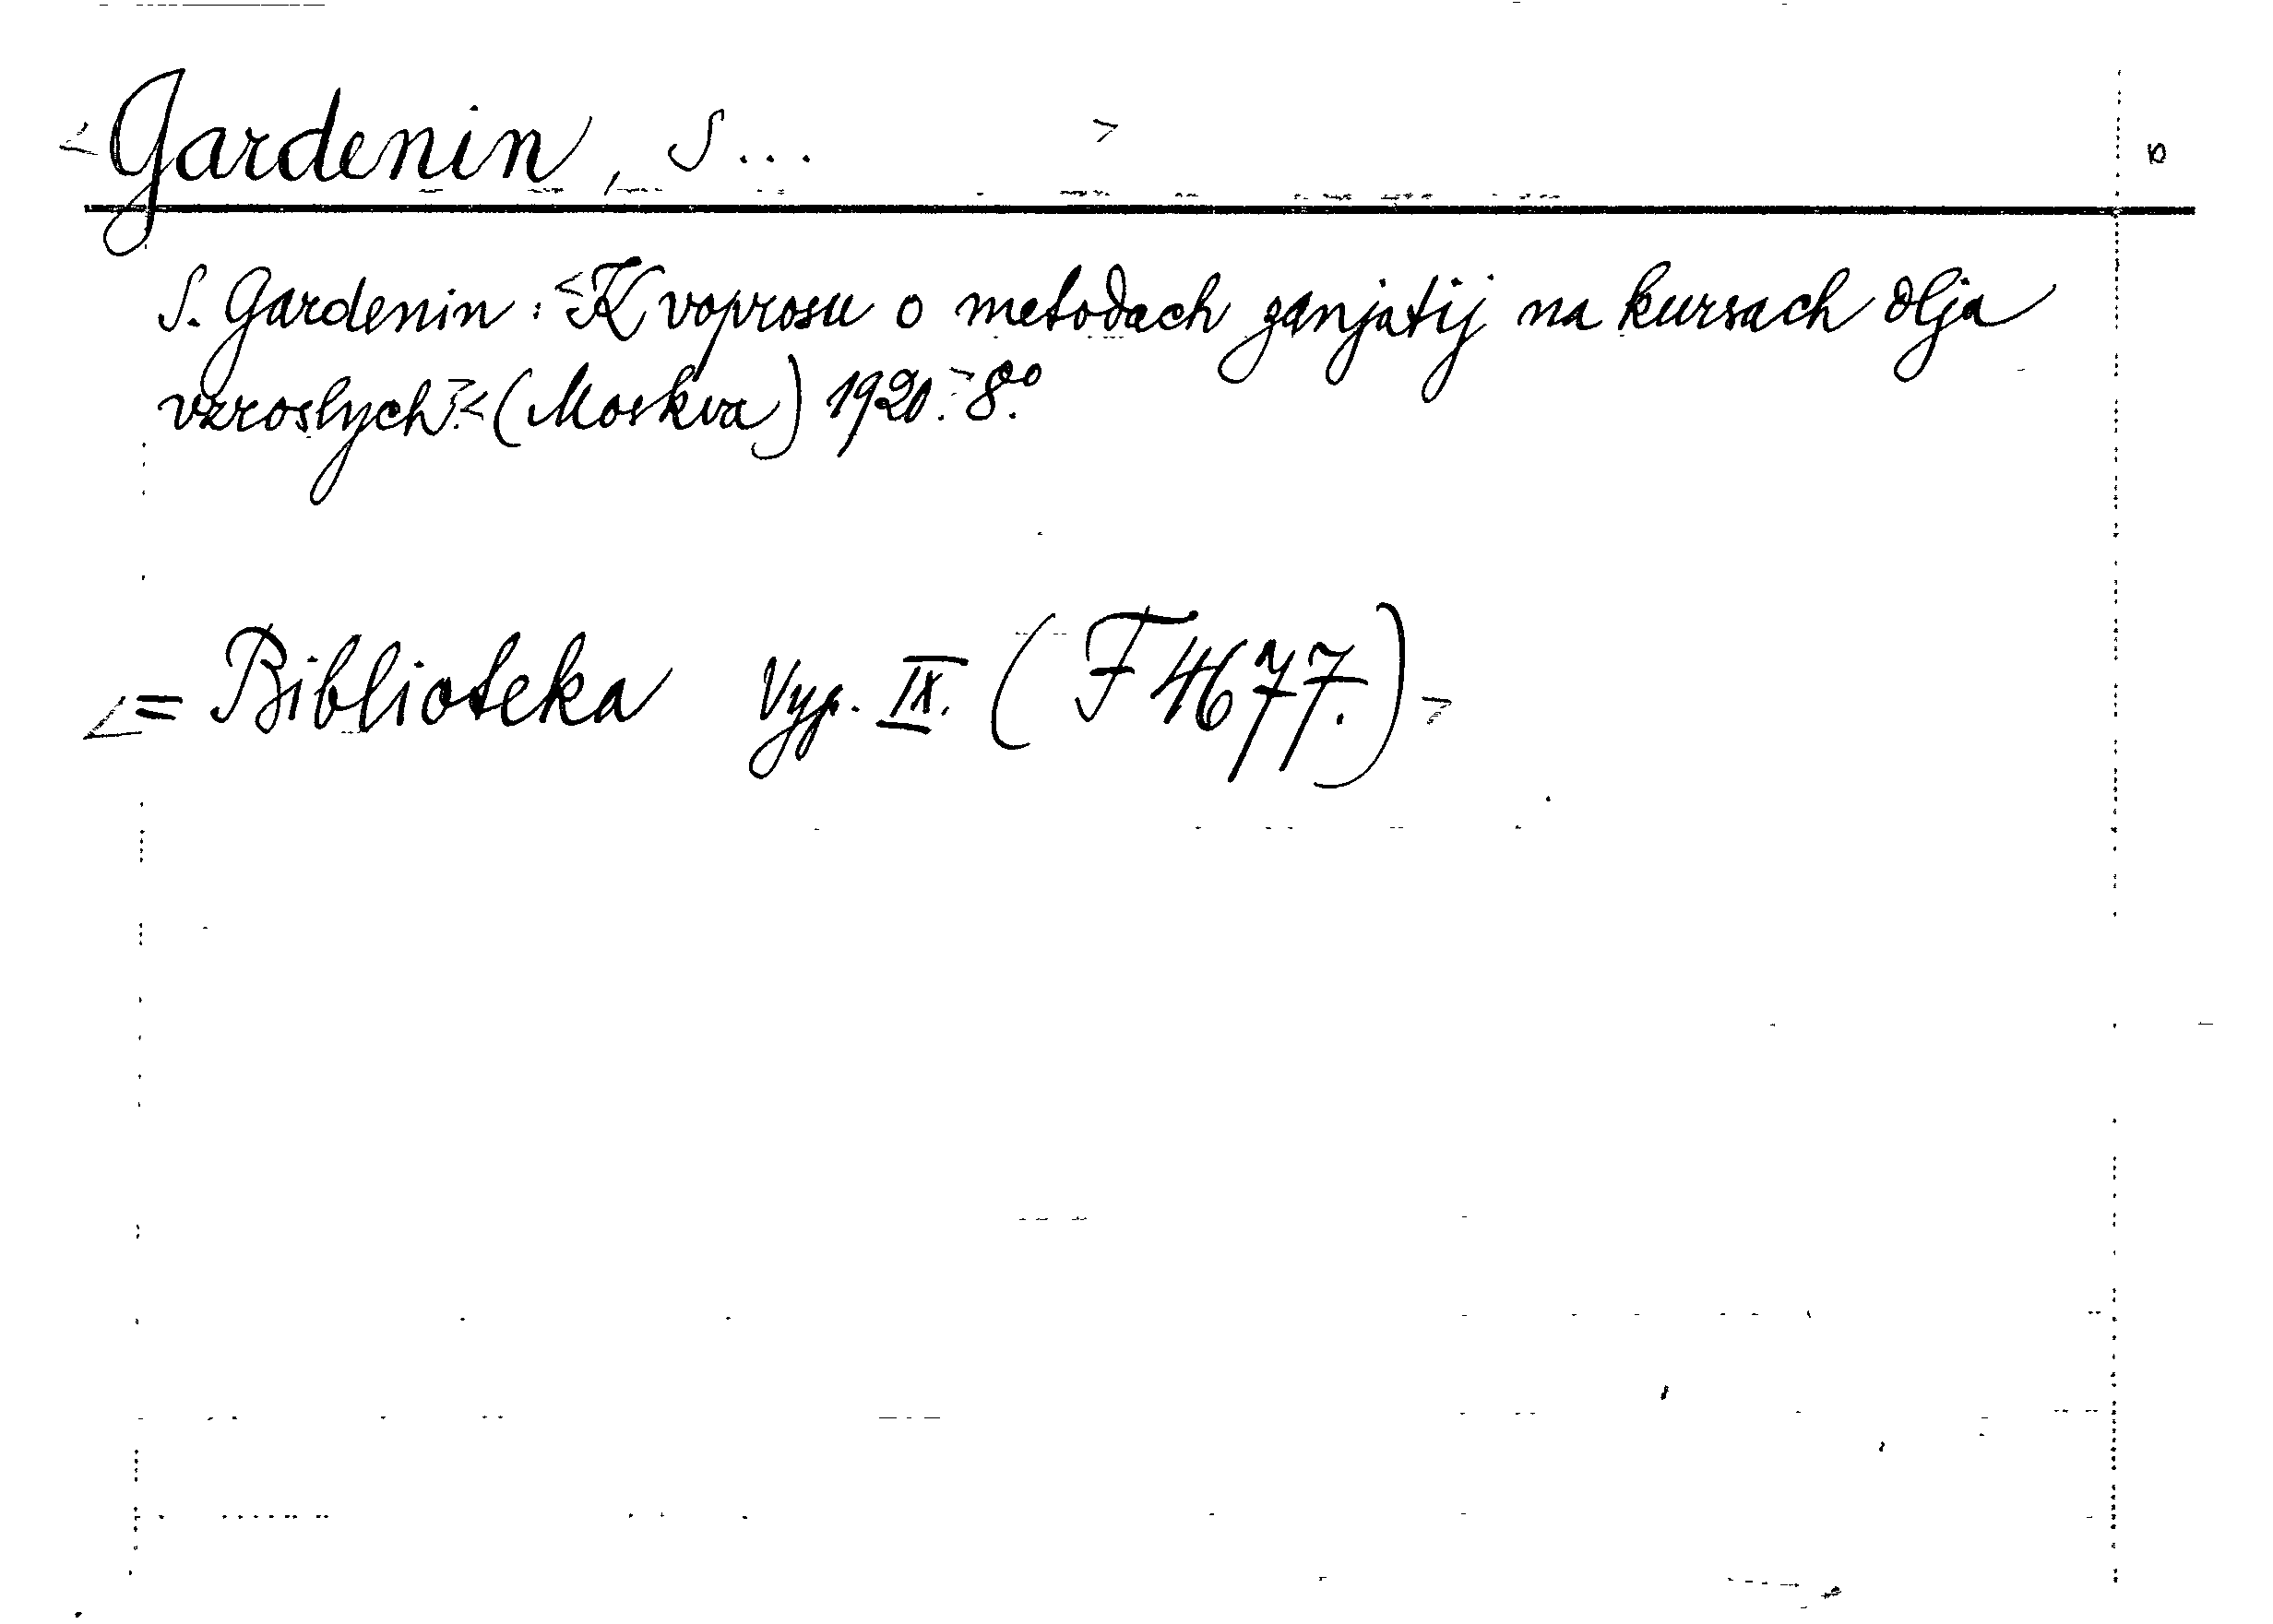 <Gardenin, S... >
S. Gardenin: <K voprosu o metodach zanjatij na kursach dlja
vzroslych.><(Moskva) 1920.> 8.°
<= Biblioteka Vyp. IX. (F 4677.)>